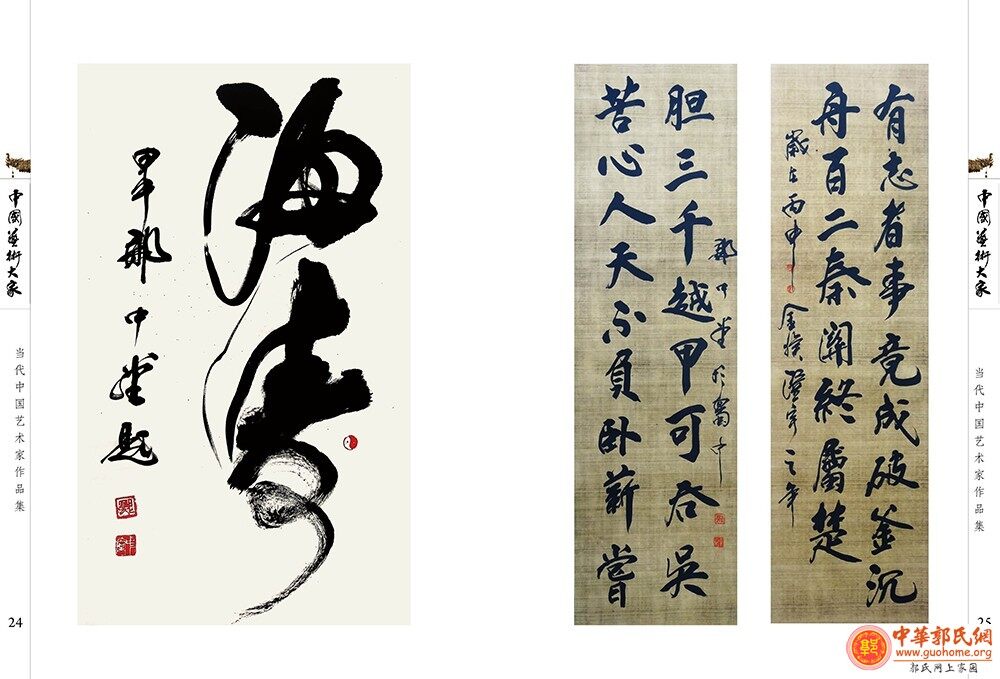 中國藝術大家
当代中国艺术家作品集
24
郭中堂题
有志者事竟成破釜沉
舟百二秦關終屬楚
歲在丙申
金猴
之年
苦心人天不負卧薪嘗
胆三千越甲可吞吳
郭中堂
中國藝術大家
当代中国艺术家作品集
25
中華郭氏網
www.guohome.org
郭氏网上家园